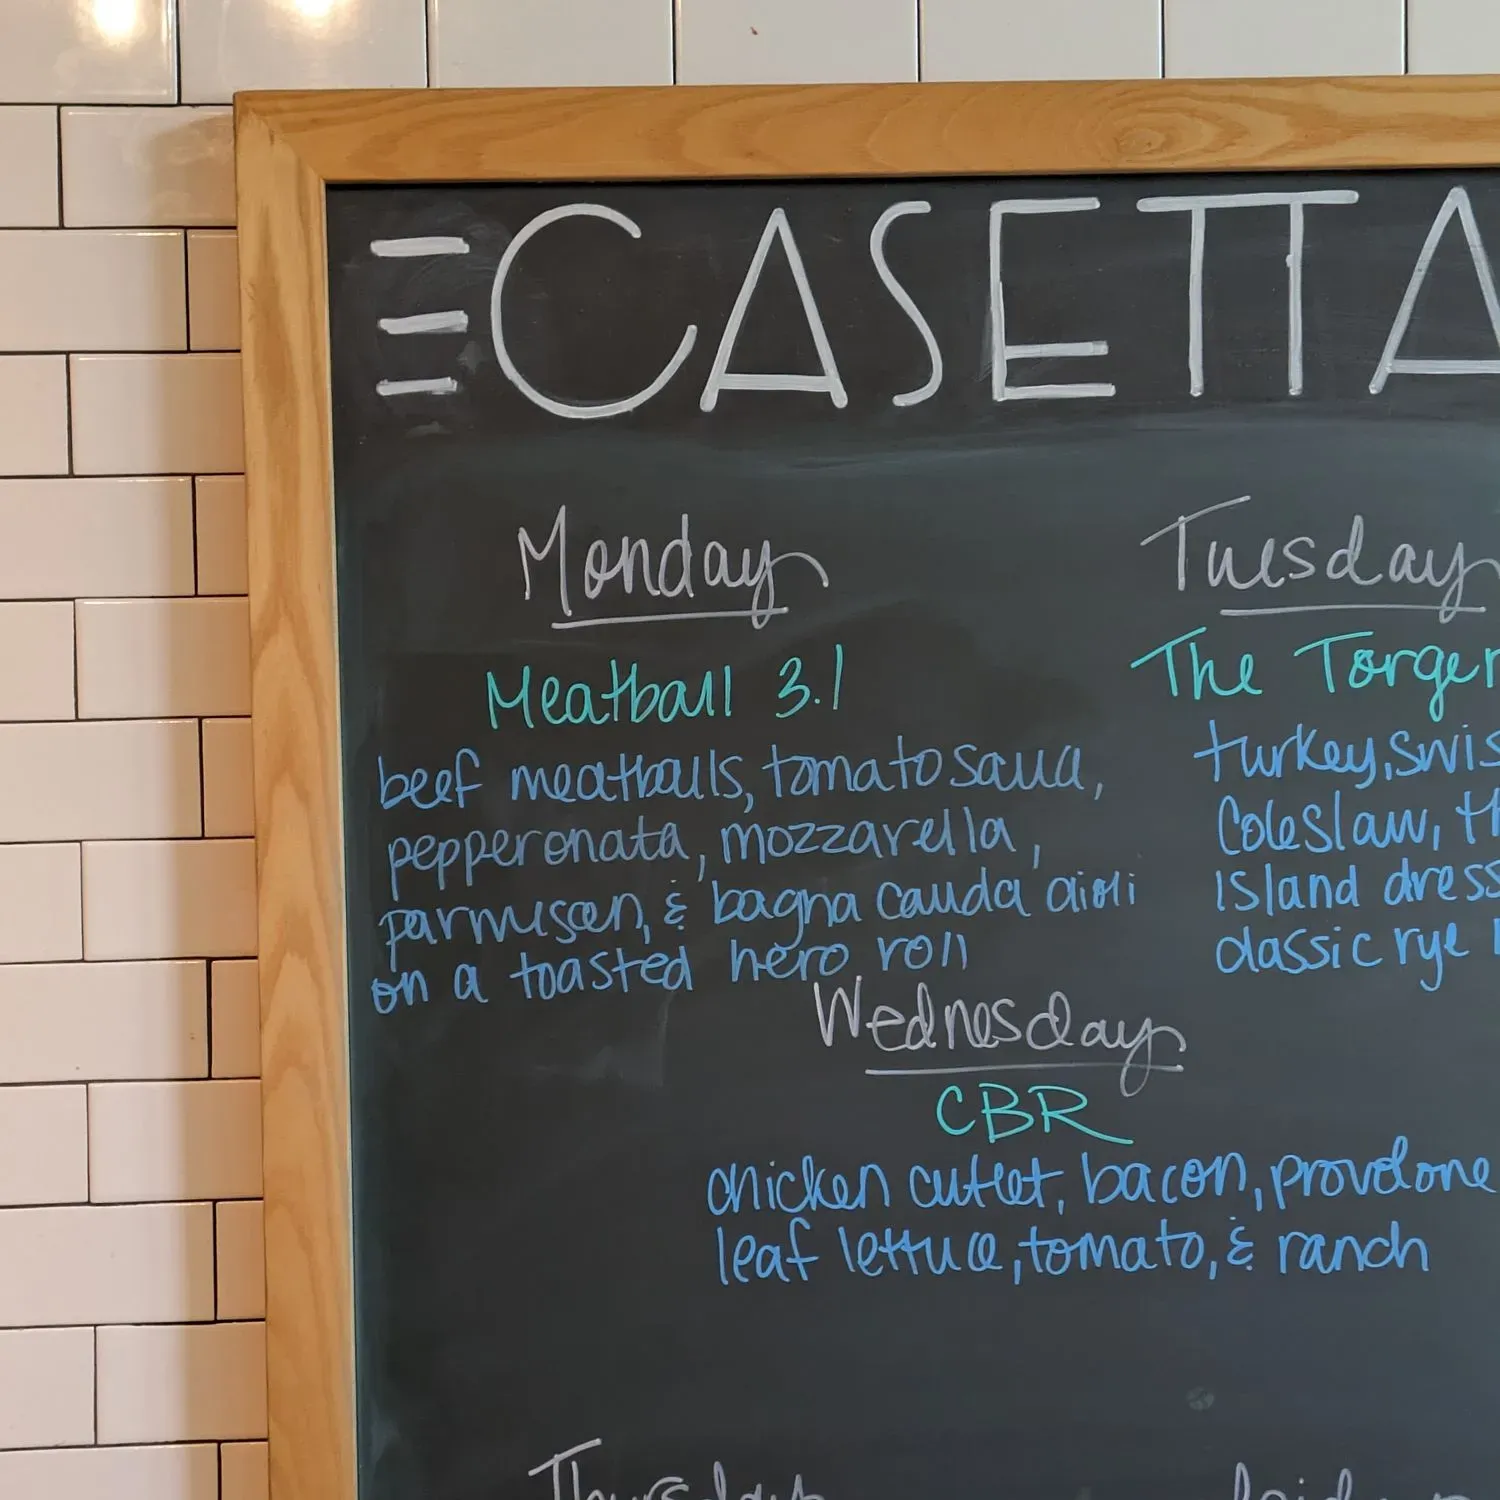 CASETTA
Monday
Meatball 3.1
beef meatballs, tomato sauce,
pepperonata, mozzarella,
parmesan, & bagna cauda aioli
on a toasted hero roll
Tuesday
The Torger
turkey, swis
coleslaw, th
island dress
classic rye
Wednesday
CBR
chicken cutlet, bacon, provolone
leaf lettuce, tomato, & ranch
Thursday